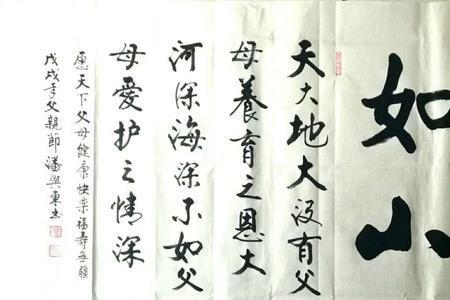 如山
天大地大没有父
母養育之恩大
河深海深不如父
母愛护之情深
愿天下父母健康快樂福壽無疆
戊戌年父親節潘興東书